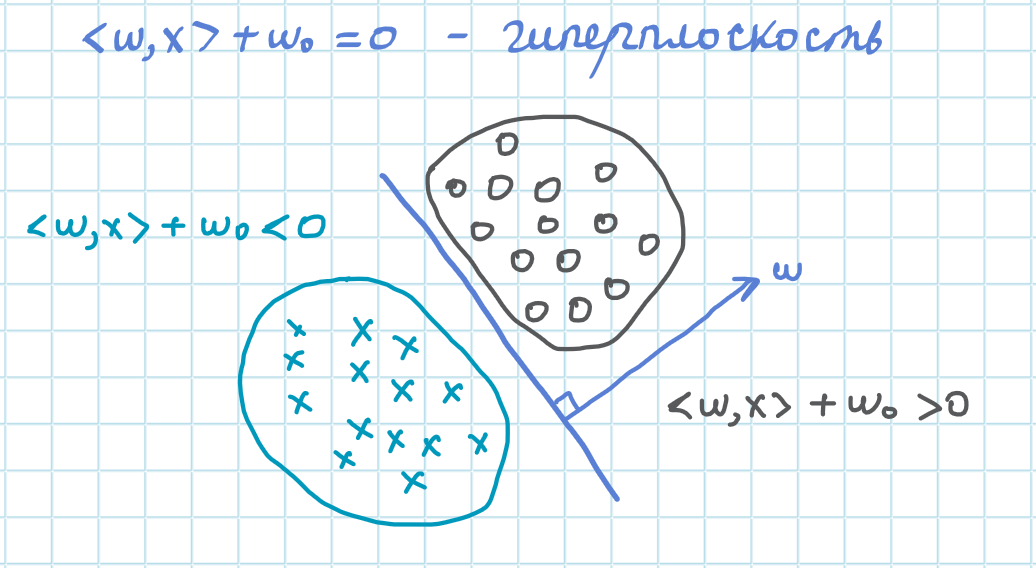 <w,x> + w₀ = 0 - гиперплоскость
<w,x> + w₀ < 0
w
<w,x> + w₀ > 0